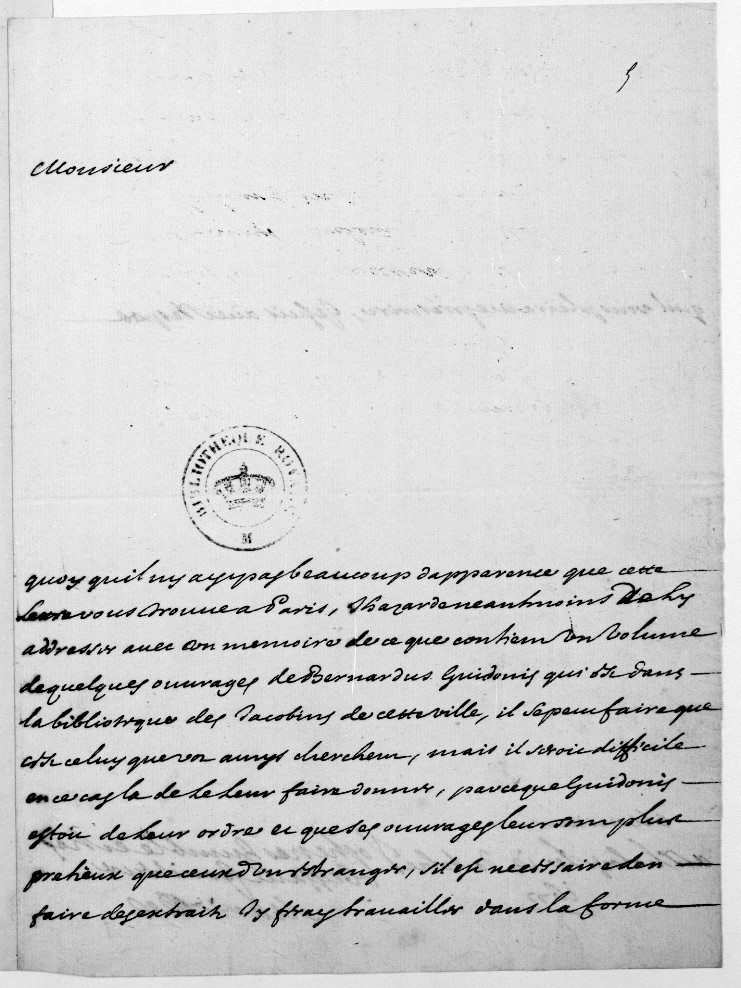 5
Monsieur
BIBLIOTHEQUE ROYALE
M
quoy quil ny ayt pas beaucoup dapparence que cette
lettre vous trouve a Paris, Jhazarde neantmoins de ly
addresser avec un memoire de ce que contient un volume
de quelques ouvrages de Bernardus Guidonis qui est dans
la biblioteque des Jacobins de cette ville, il se peut faire que
cest celuy que vos amys cherchent, mais il seroit difficile
en ce cas la de le leur faire donner, parce que Guidonis
estoit de leur ordre et que ses ouvrages leur sont plus
pretieux que ceux dun estranger, sil est necessaire den
faire des extraits Jy feray travailler dans la forme